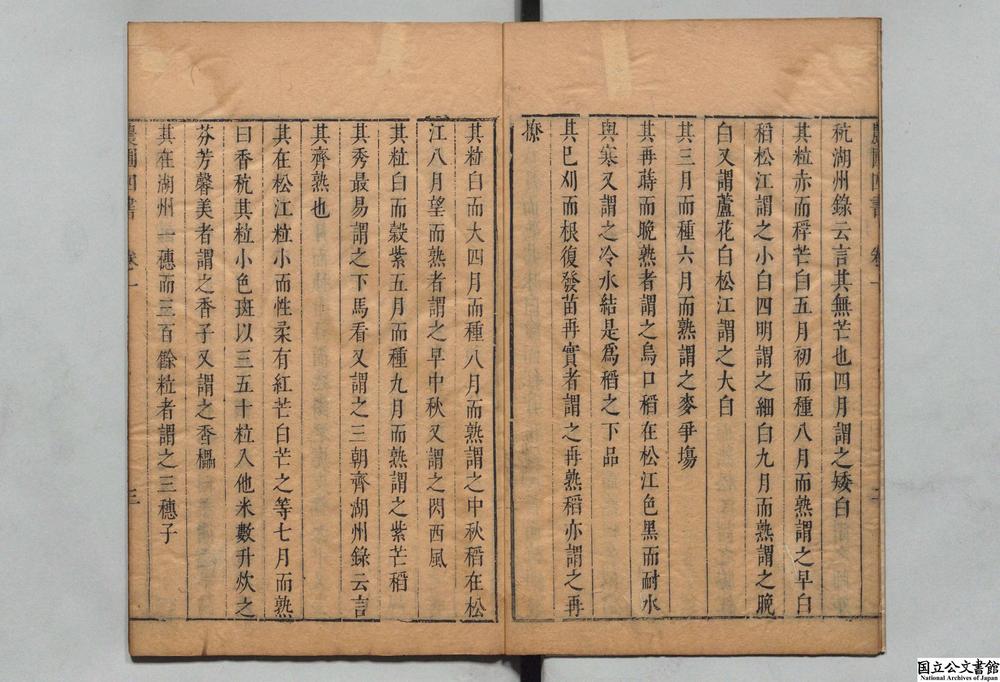 秔湖州錄云言其無芒也四月謂之矮白
其粒赤而稃芒白五月初而種八月而熟謂之早白
稻松江謂之小白四明謂之細白九月而熟謂之晚
白又謂蘆花白松江謂之大白
其三月而種六月而熟謂之麥爭場
其再蒔而晚熟者謂之烏口稻在松江色黑而耐水
與寒又謂之冷水結是爲稻之下品
其已刈而根復發苗再實者謂之再熟稻亦謂之再
撩
其粒白而大四月而種八月而熟謂之中秋稻在松
江八月望而熟者謂之早中秋又謂之閃西風
其粒白而穀紫五月而種九月而熟謂之紫芒稻
其秀最易謂之下馬看又謂之三朝齊湖州錄云言
其齊熟也
其在松江粒小而性柔有紅芒白芒之等七月而熟
曰香秔其粒小色斑以三五十粒入他米數升炊之
芬芳馨美者謂之香子又謂之香櫑
其在湖州一穗而三百餘粒者謂之三穗子
農圃四書 卷一 二
農圃四書 卷一 三
国立公文書館
National Archives of Japan